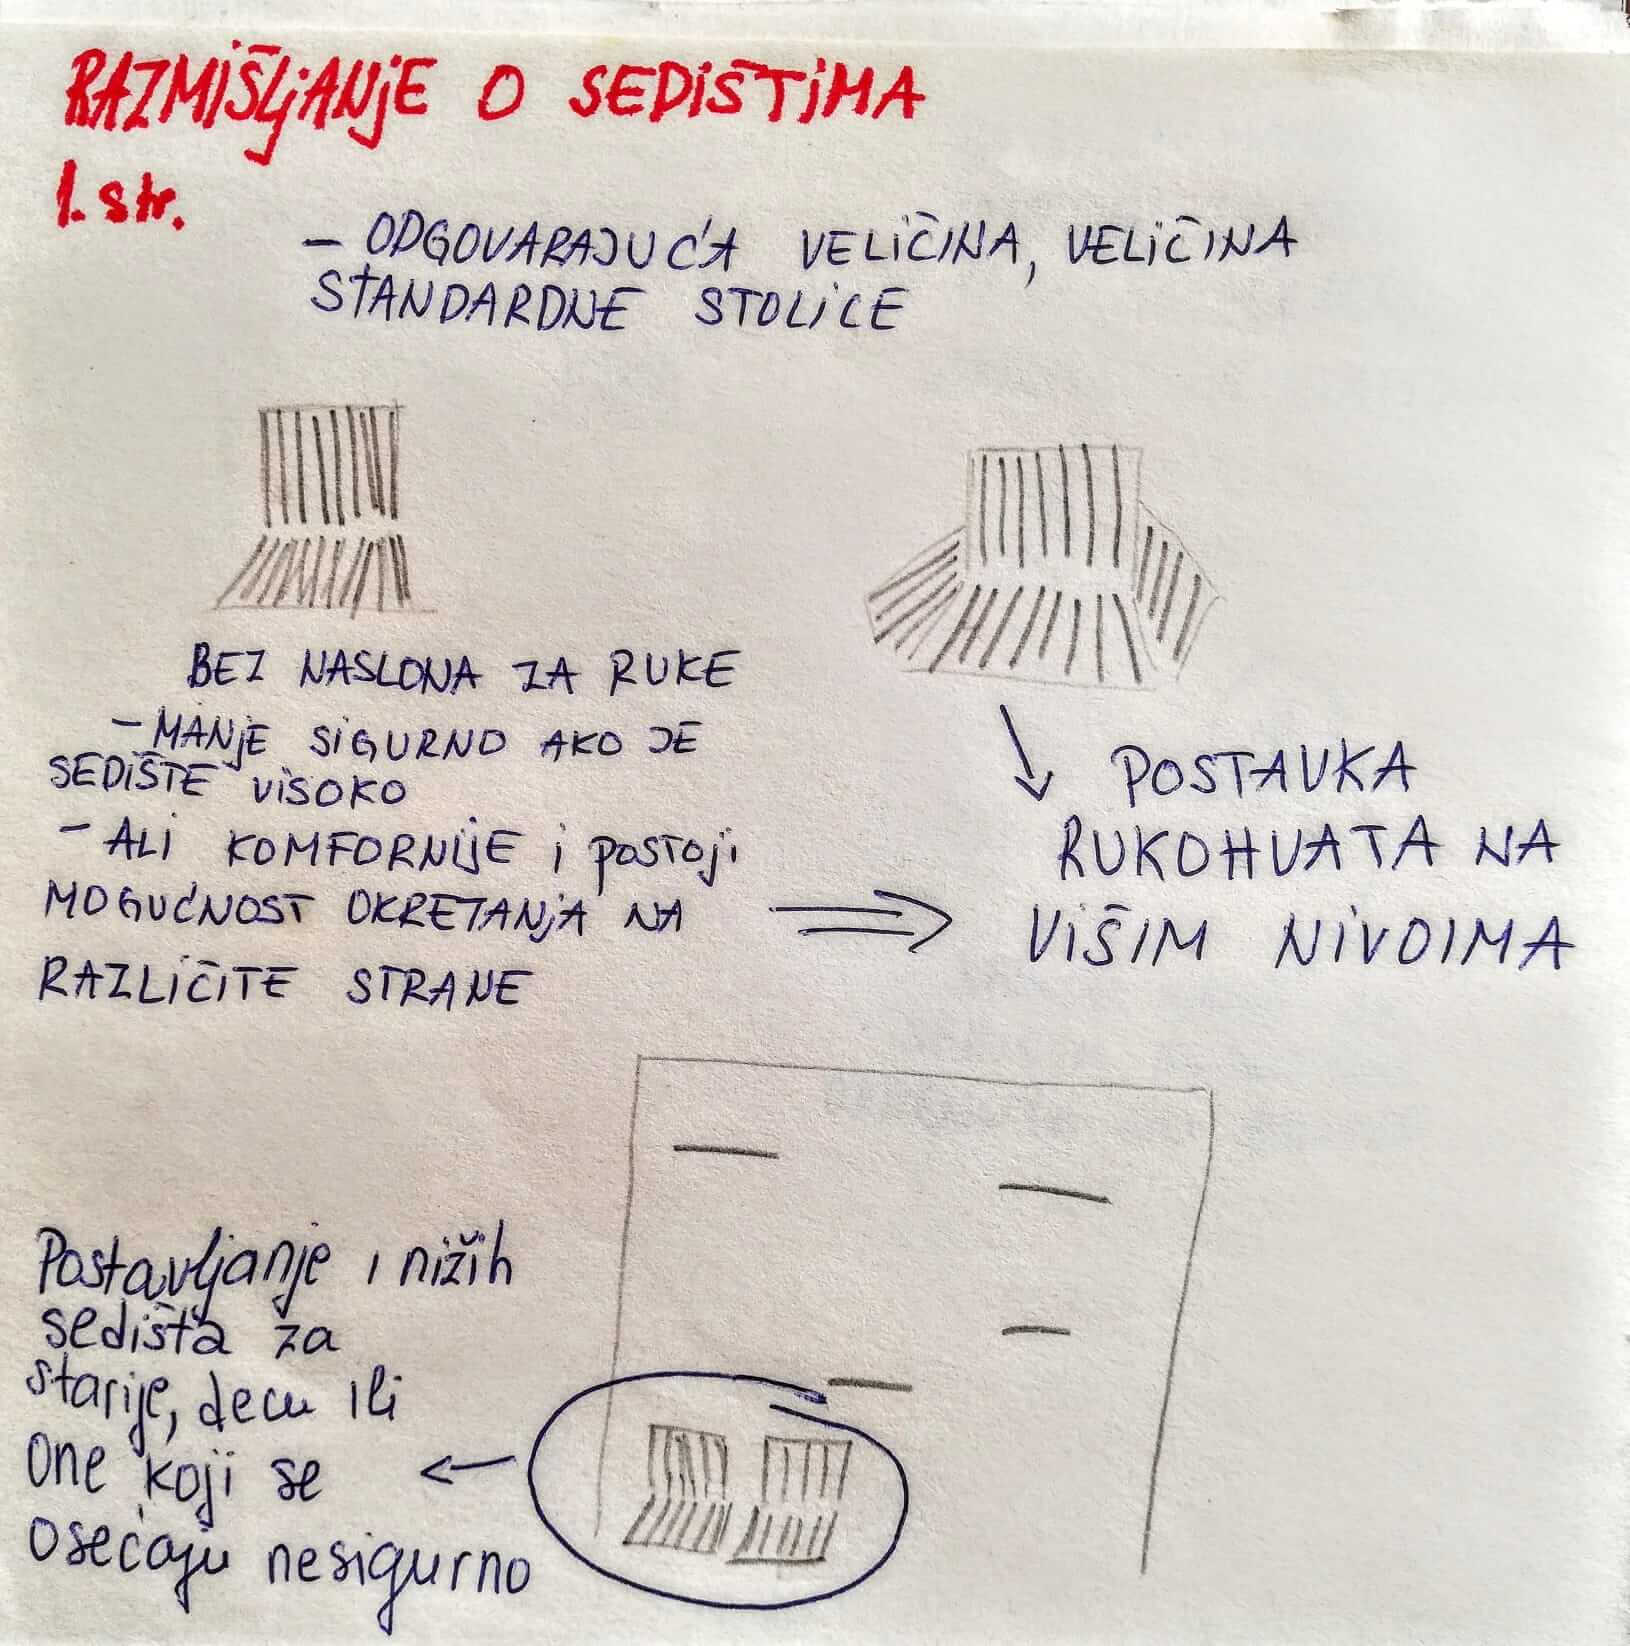 RAZMIŠLJANJE O SEDIŠTIMA
1. str.
- ODGOVARAJUĆA VELIČINA, VELIČINA
STANDARDNE STOLICE
BEZ NASLONA ZA RUKE
- MANJE SIGURNO AKO JE
SEDIŠTE VISOKO
- ALI KOMFORNIJE i POSTOJI
MOGUĆNOST OKRETANJA NA
RAZLIČITE STRANE
POSTAVKA
RUKOHVATA NA
VIŠIM NIVOIMA
Postavljanje i nižih
sedišta za
starije, decu ili
One koji se
osećaju nesigurno